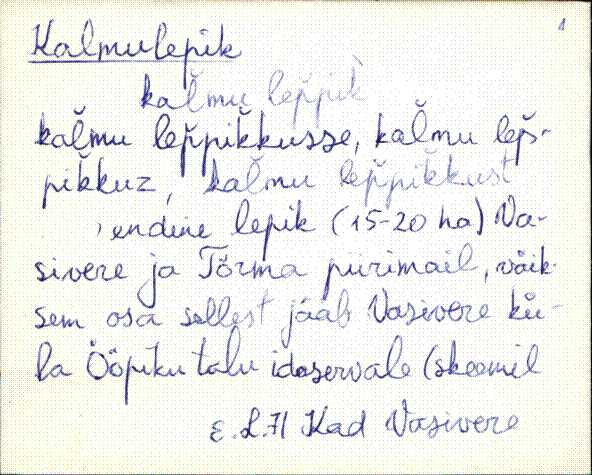 1
Kalmulepik
kal̆mu lep̆pik̀
kal̆mu lep̆pik̆kusse, kal̆mu lep̆-
pik̆kuz, kal̆mu lep̆pik̆kust
, endine lepik (15-20 ha) Va-
sivere ja Tõrma piirimail, väik-
sem osa sellest jääb Vasivere kü-
la Ööpiku talu idaservale (skeemil
E.L.71 Kad Vasivere